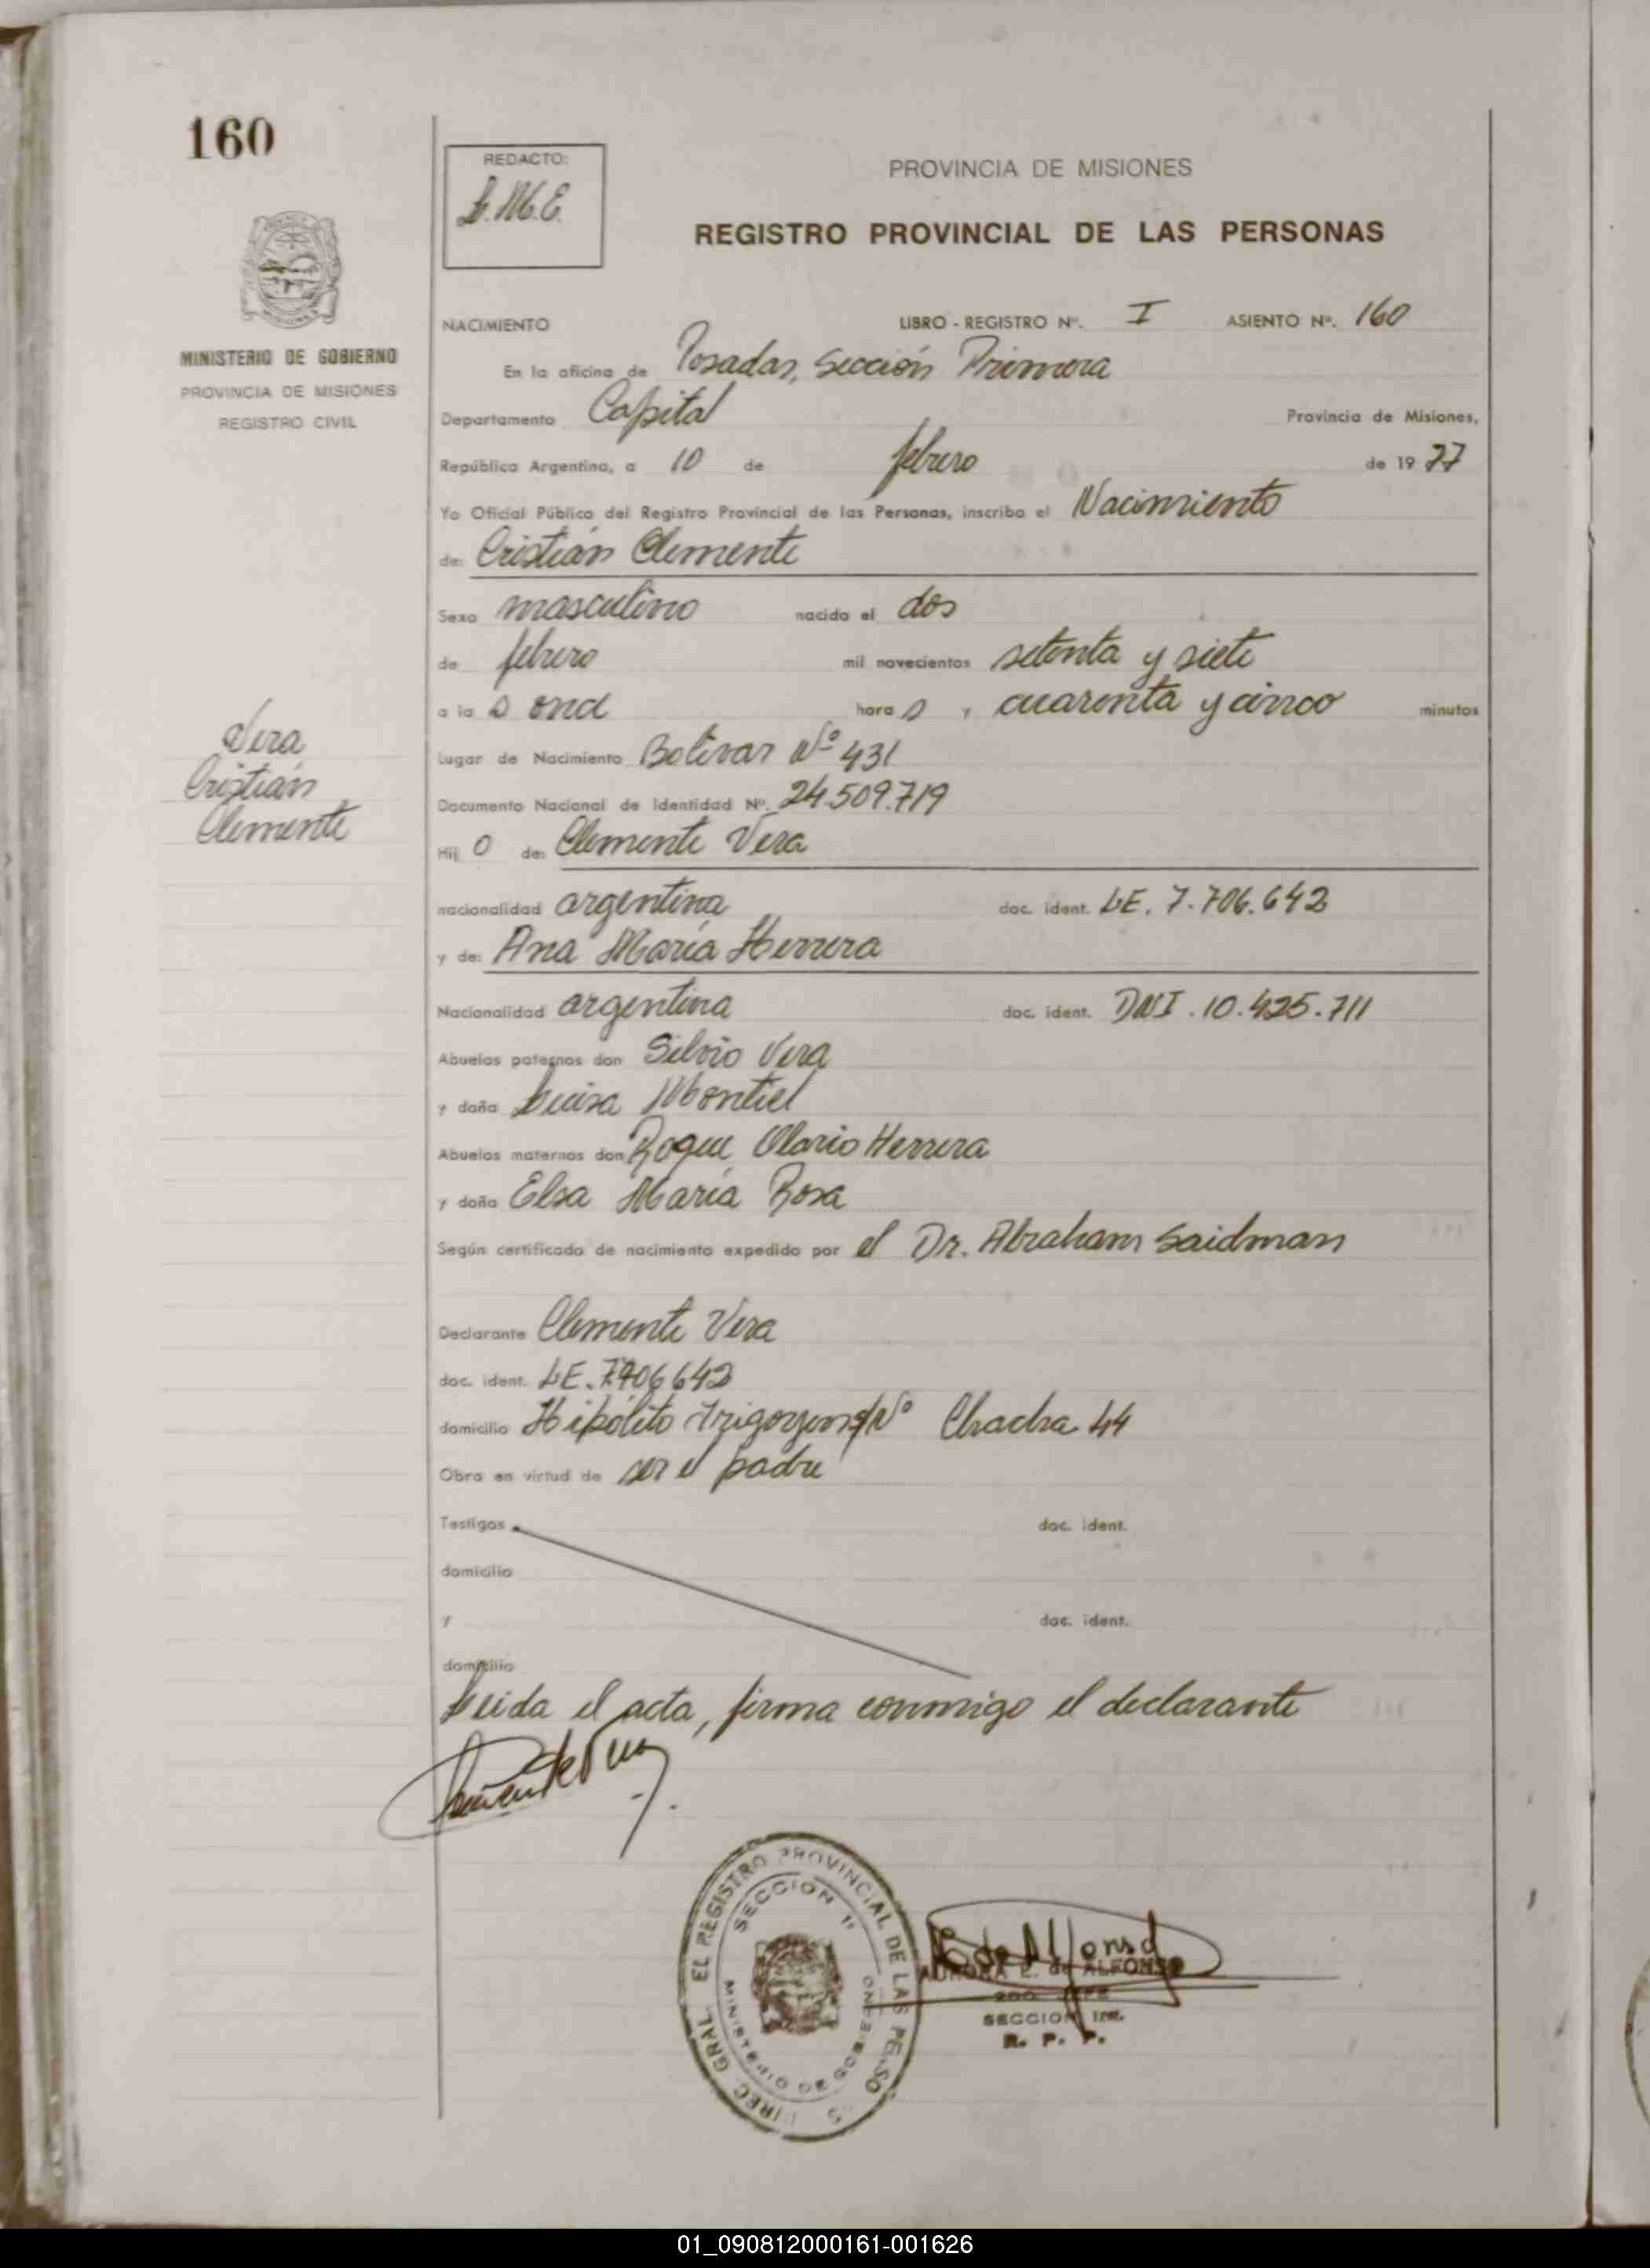 160
REDACTO:
L.M.E.
PROVINCIA DE MISIONES
REGISTRO PROVINCIAL DE LAS PERSONAS
MINISTERIO DE GOBIERNO
PROVINCIA DE MISIONES
REGISTRO CIVIL
NACIMIENTO LIBRO - REGISTRO Nº. I ASIENTO Nº. 160
En la oficina de Posadas, Sección Primera
Departamento Capital Provincia de Misiones,
República Argentina, a 10 de febrero de 1977
Yo Oficial Público del Registro Provincial de las Personas, inscribo el Nacimiento
de: Cristián Clemente
Sexo masculino nacido el dos
de febrero mil novecientos setenta y siete
a las once horas y cuarenta y cinco minutos
Vera
Cristián
Clemente
Lugar de Nacimiento Bolívar Nº 431
Documento Nacional de Identidad Nº. 24.509.719
Hijo de: Clemente Vera
nacionalidad argentina doc. ident. LE. 7.706.642
y de: Ana María Herrera
Nacionalidad argentina doc. ident. DNI. 10.425.711
Abuelos paternos don Silvio Vera
y doña Luisa Montiel
Abuelos maternos don Roque Olario Herrera
y doña Elsa María Rosa
Según certificado de nacimiento expedido por el Dr. Abraham Saidman
Declarante Clemente Vera
doc. ident. LE. 7706642
domicilio Hipólito Irigoyen s/Nº Chacra 44
Obra en virtud de ser el padre
Testigos doc. ident.
domicilio
y doc. ident.
domicilio
Leida el acta, firma conmigo el declarante
Clemente Vera
DIREC. GRAL. EL REGISTRO PROVINCIAL DE LAS PERSO S
SECCION 1ª
MINISTERIO DE GOBIERNO
AURORA E. de ALFONSO
2DO. JEFE
SECCION 1ra.
R. P. P.
01_090812000161-001626